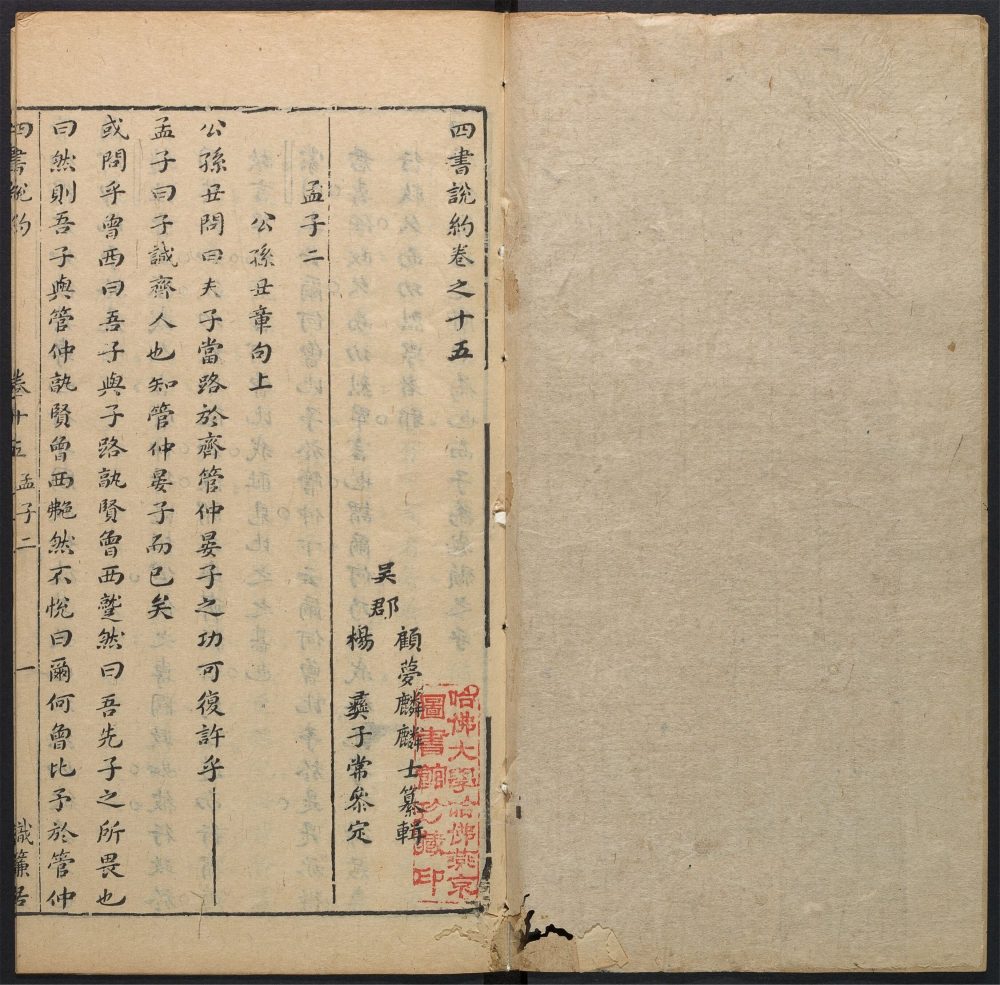 四書說約卷之十五
吳郡
顧夢麟麟士纂輯
楊彞子常參定
孟子二
公孫丑章句上
公孫丑問曰夫子當路於齊管仲晏子之功可復許乎
孟子曰子誠齊人也知管仲晏子而已矣
或問乎曾西曰吾子與子路孰賢曾西蹵然曰吾先子之所畏也
曰然則吾子與管仲孰賢曾西艴然不悅曰爾何曾比予於管仲
四書說約 卷十五 孟子二 一 織簾居
哈佛大學哈佛燕京
圖書館珍藏印